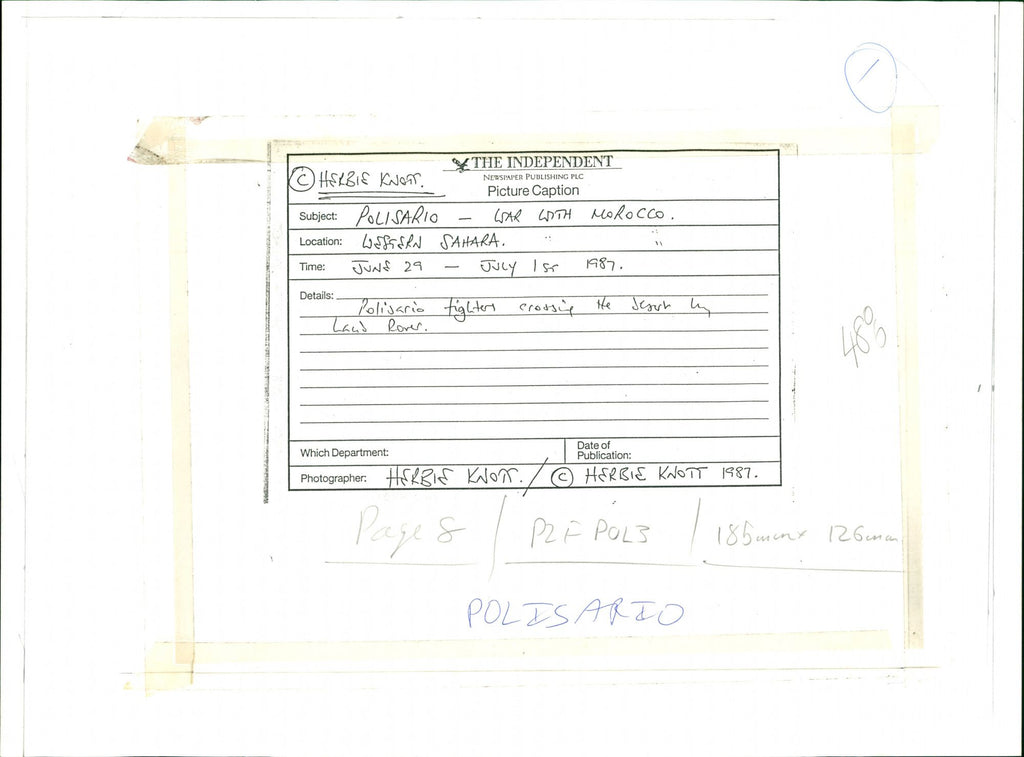 1
THE INDEPENDENT
NEWSPAPER PUBLISHING PLC
© HERBIE KNOTT.
Picture Caption
Subject: POLISARIO — WAR WITH MOROCCO.
Location: WESTERN SAHARA. " "
Time: JUNE 29 — JULY 1ST 1987.
Details:
Polisario fighters crossing the desert by
Land Rover.
Which Department:
Date of
Publication:
Photographer: HERBIE KNOTT. / © HERBIE KNOTT 1987.
Page 8 / P2F POL3 / 185mm x 126mm
POLISARIO